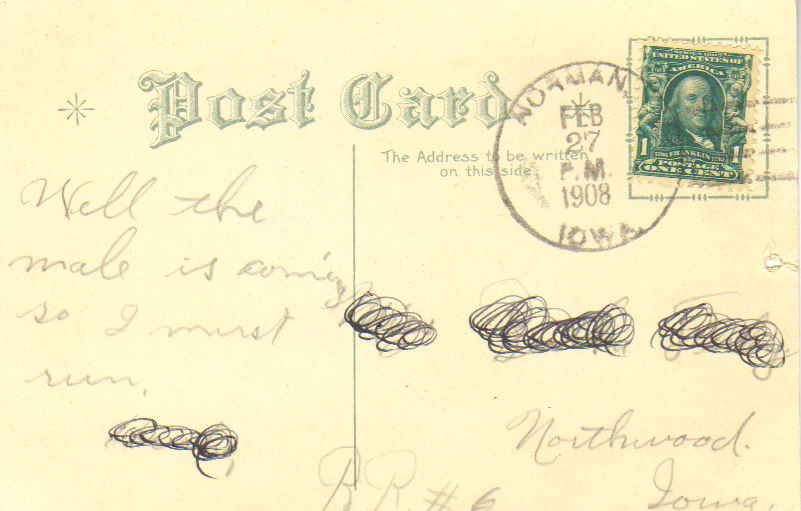 Post Card
The Address to be written
on this side.
NORMAN,
FEB
27
P.M.
1908
IOWA
UNITED STATES OF
AMERICA
1 1
FRANKLIN
POSTAGE
ONE CENT
Well the
male is coming
so I must
run.
Northwood.
R R. # 6
Iowa.